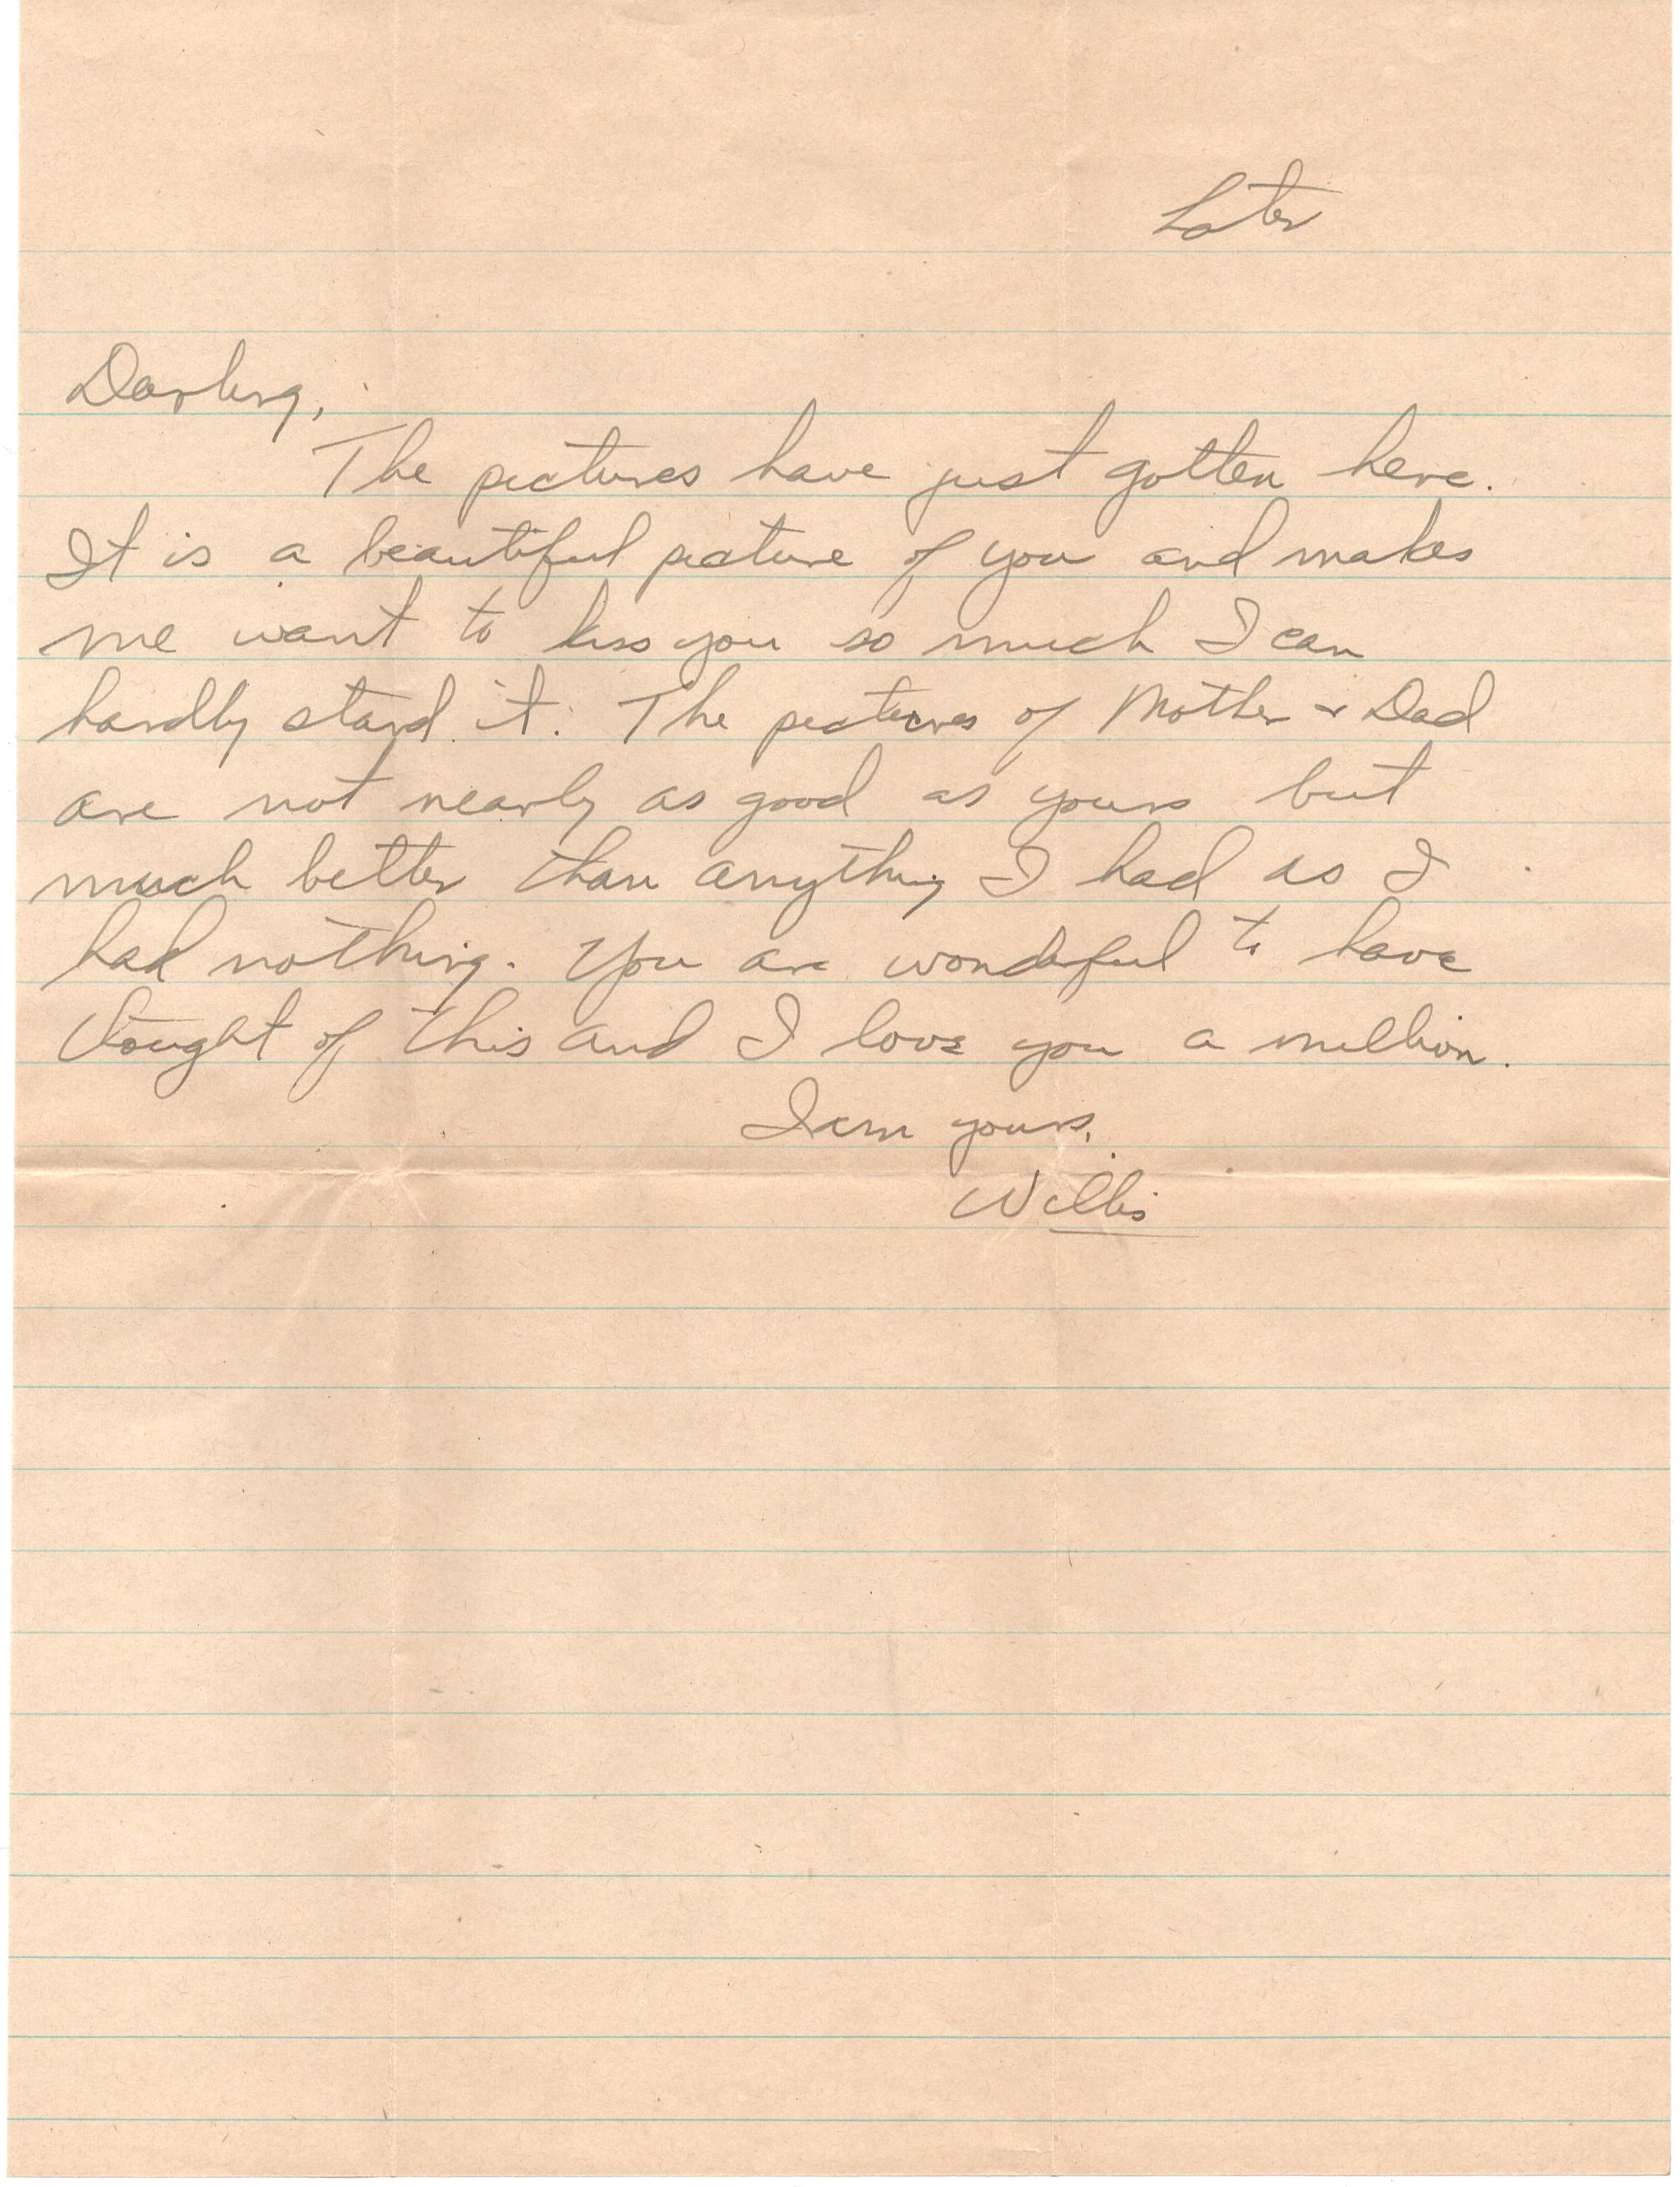 Later
Darling,
The pictures have just gotten here.
It is a beautiful picture of you and makes
me want to kiss you so much I can
hardly stand it. The pictures of Mother & Dad
are not nearly as good as yours but
much better than anything I had as I
had nothing. You are wonderful to have
thought of this and I love you a million.
I am yours,
Willis